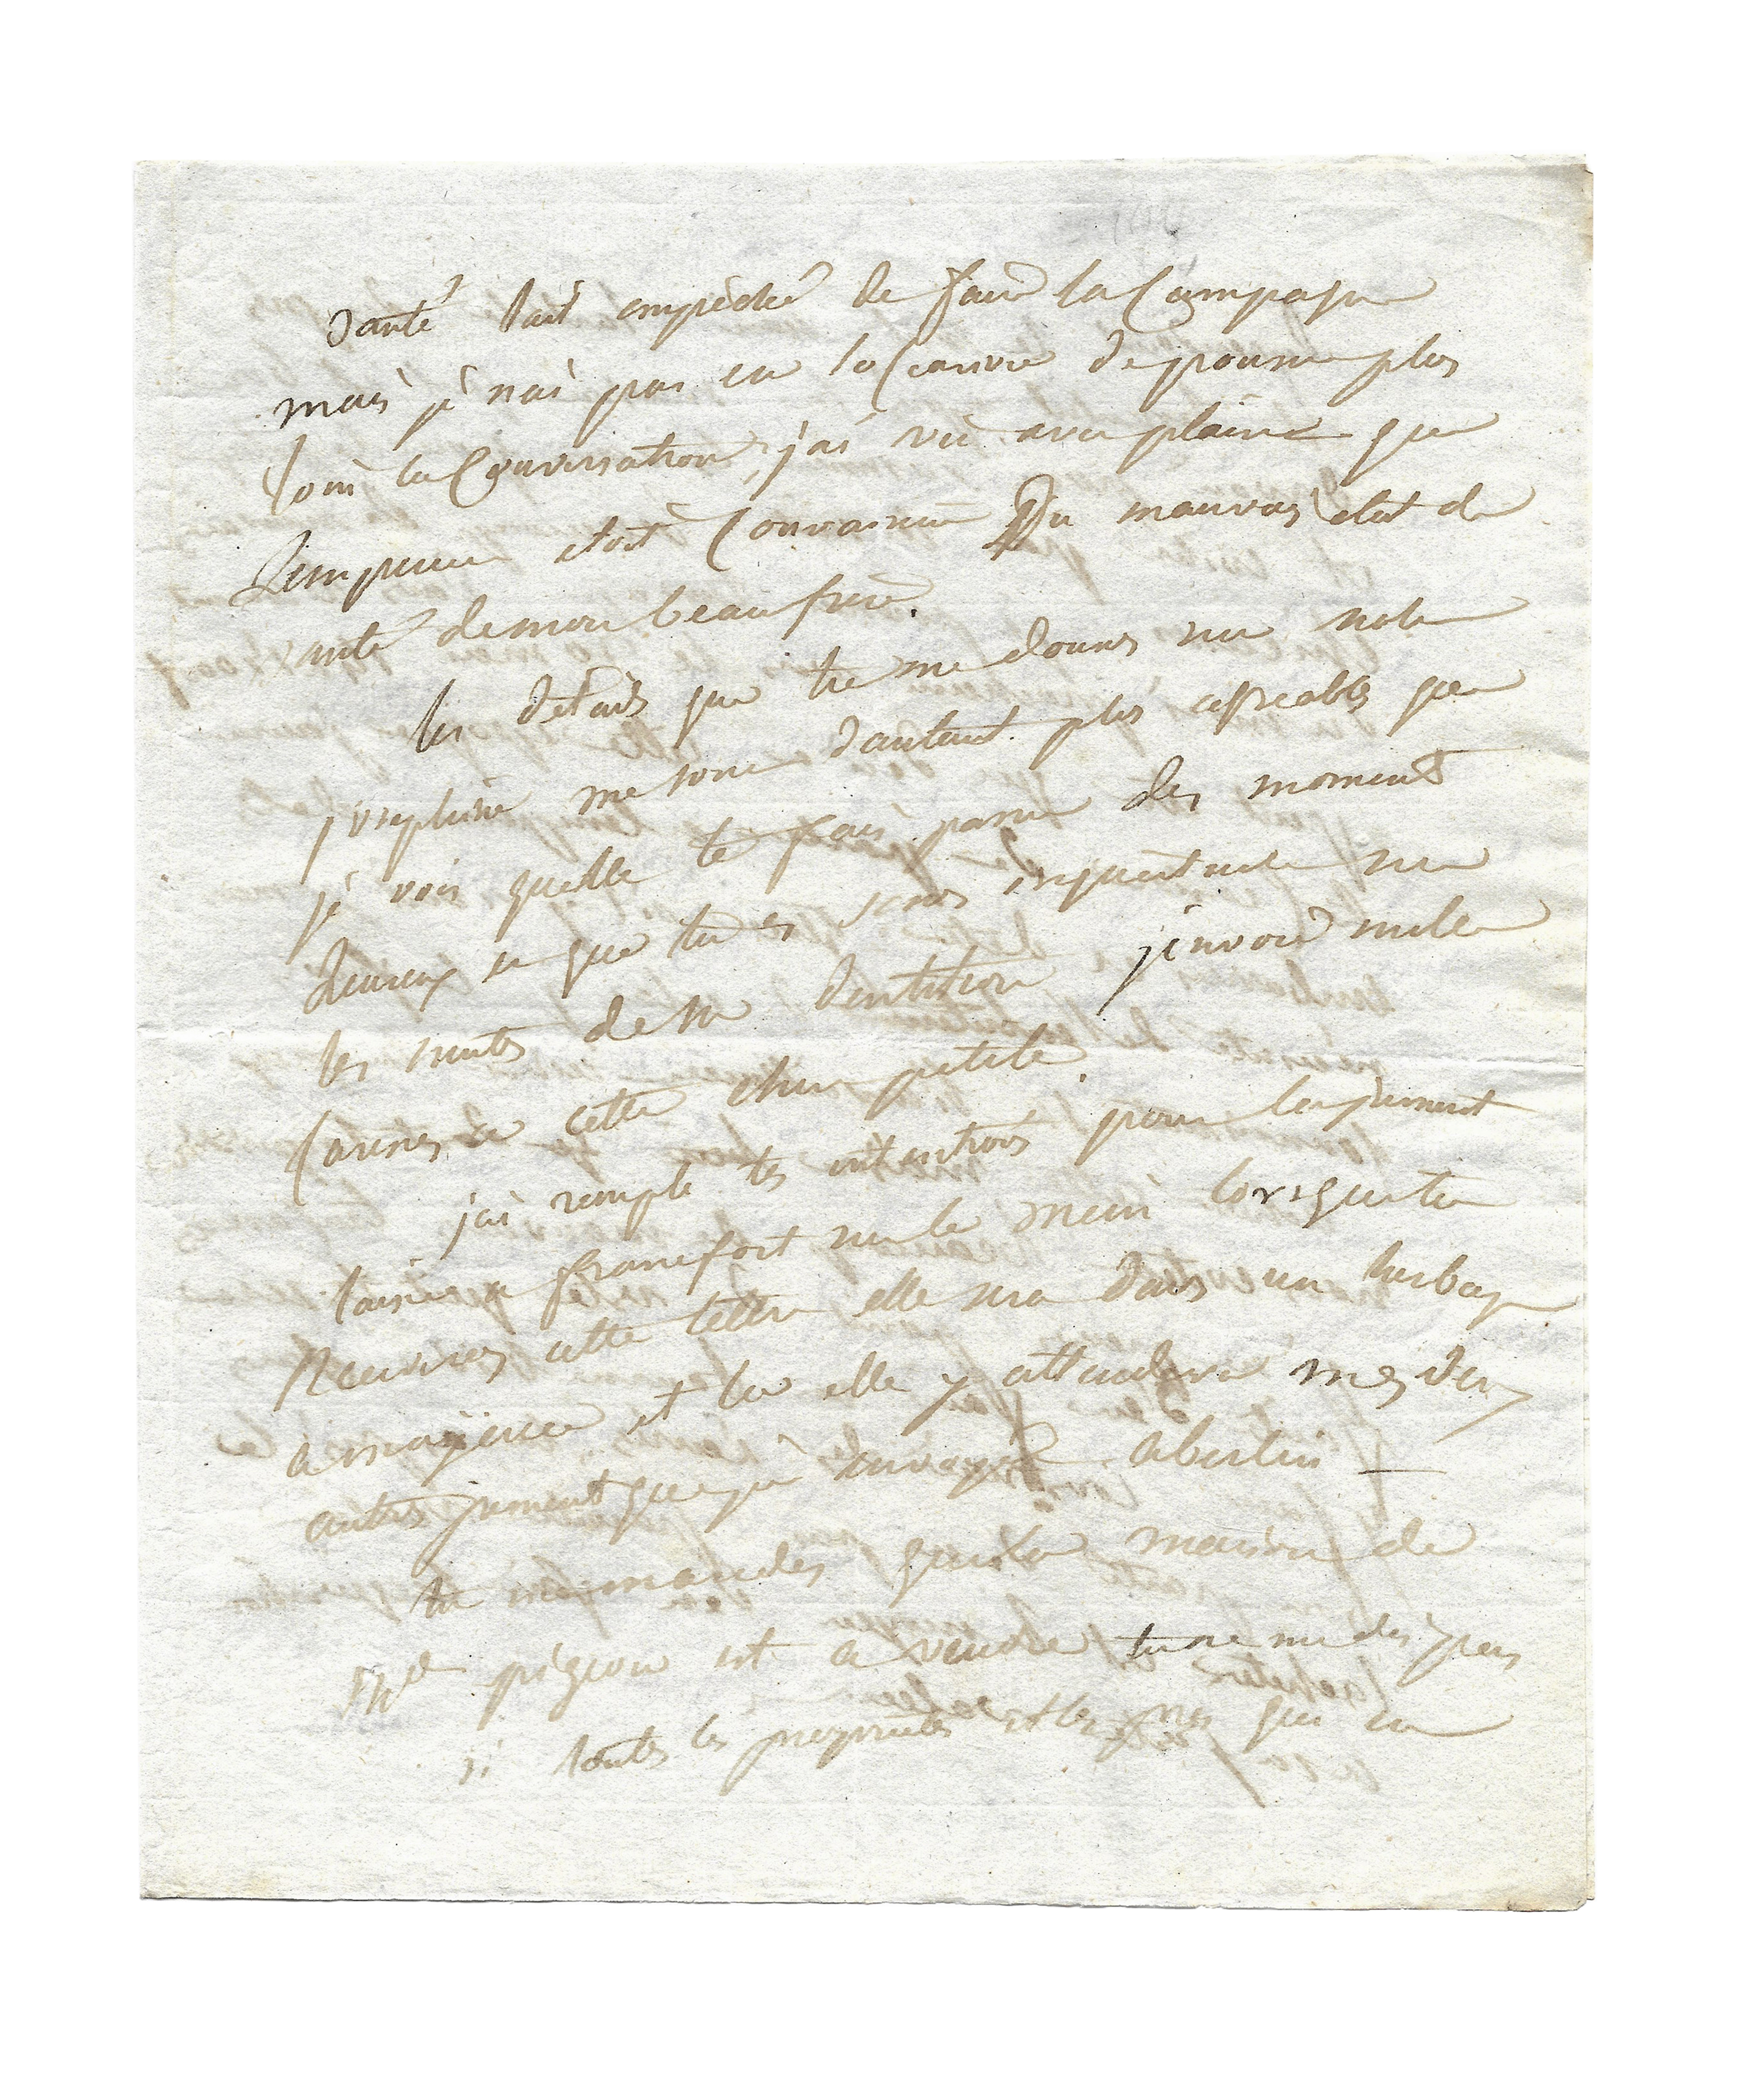 santé lait empêché de faire la Campagne
mais je nai pas eu loccasion de pousser plus
loin la Conversation, jai vu avec plaisir que
Lempereur etoit Convaincu Du mauvais etat de
santé de mon beau frere.
les details que tu me donnes sur notre
josephine me sont dautant plus agreables que
je vois quelle te fais passer des moments
heureux et que tu es sans inquietude sur
les suites de sa dentition jenvoie mille
Caresses a cette chere petite.
jai rempli tes intentions pour la jument
laissée a francfort sur le mein lorsque tu
Recevras cette lettre elle sera dans un herbage
a mayence et la elle y attendra mes deux
autres jument que jai envoyé a berlin —
tu me mandes que la maison de
Md pigeon est a vendre tu ne me dis pas
si toutes les propriétés et les prés qui en